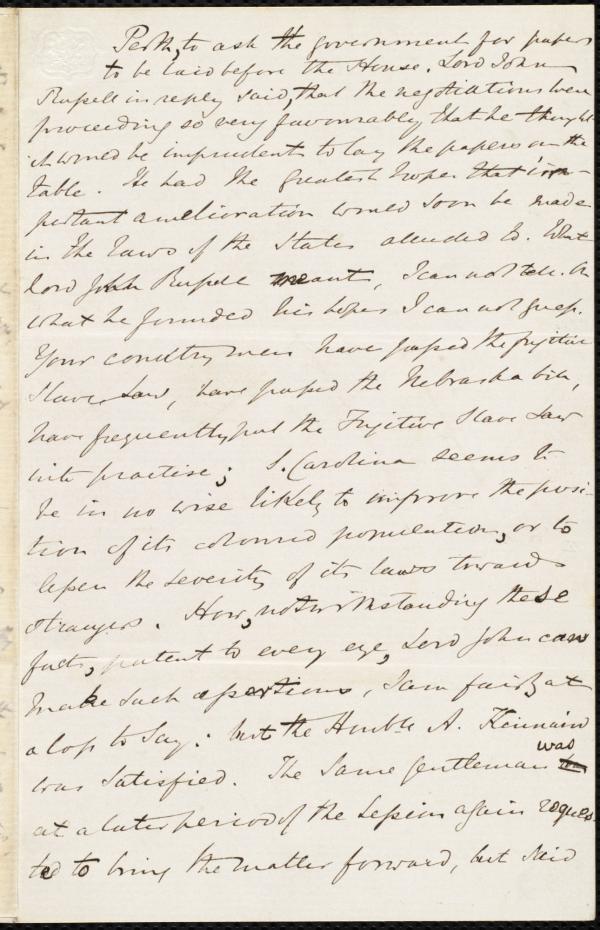 Perth, to ask the government for papers
to be laid before the House. Lord John
Russell in reply said, that the negotiations were
proceeding so very favourably, that he thought
it would be imprudent to lay the papers on the
table. He had the greatest hopes that im-
portant amelioration would soon be made
in the laws of the States alluded to. What
Lord John Russell meant, I can not tell. On
what he founded his hopes I can not guess.
Your countrymen have passed the fugitive
Slave Law, have passed the Nebraska bill,
have frequently put the Fugitive Slave Law
into practise; S. Carolina seems to
be in no wise likely to improve the posi-
tion of its coloured population, or to
lessen the severity of its laws towards
strangers. How, notwithstanding these
facts, patent to every eye, Lord John can
make such assertions, I am fairly at
a loss to say: but the Honble A. Kinnaird
was satisfied. The same gentleman was
at a later period of the Session again reques
ted to bring the matter forward, but said